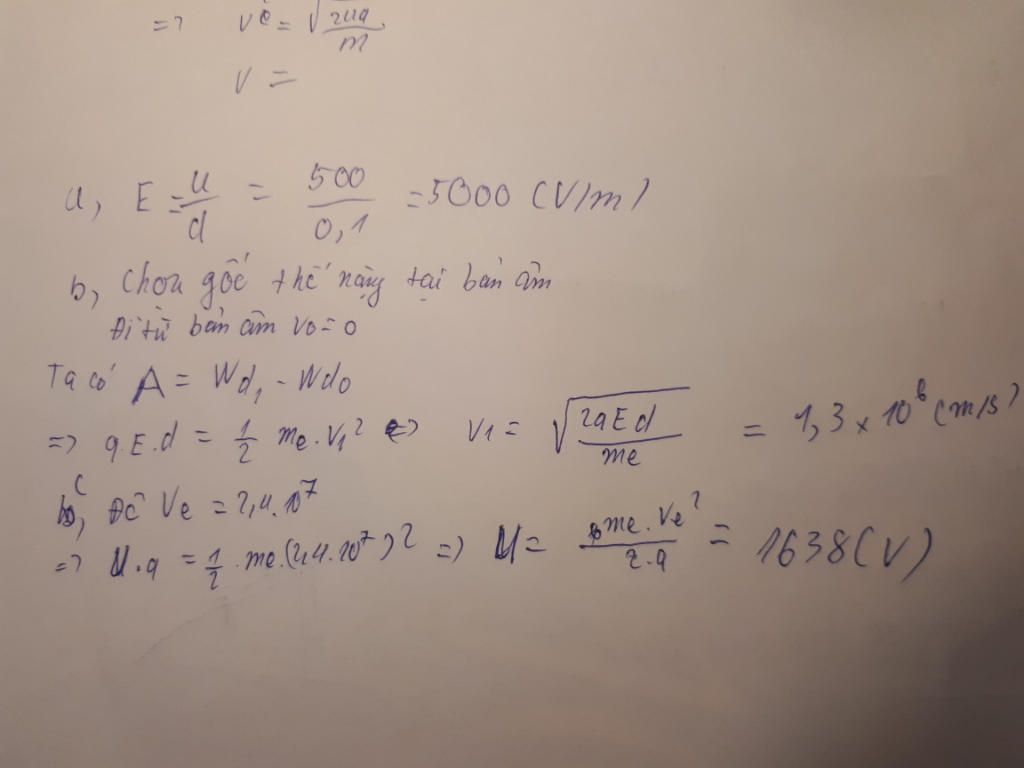 => ve = √(2uq/m)
V =
a, E = u/d = 500/0,1 = 5000 (V/m)
b, Chọn gốc thế năng tại bản âm
Đi từ bản âm v0 = 0
Ta có A = Wđ1 - Wđ0
=> q.E.d = 1/2 me.v1² <=> v1 = √(2qEd/me) = 1,3 × 10⁶ (m/s)
c, Để Ve = 2,4.10⁷
=> U.q = 1/2 .me.(2,4.10⁷)² => U = me.Ve²/2.q = 1638 (V)